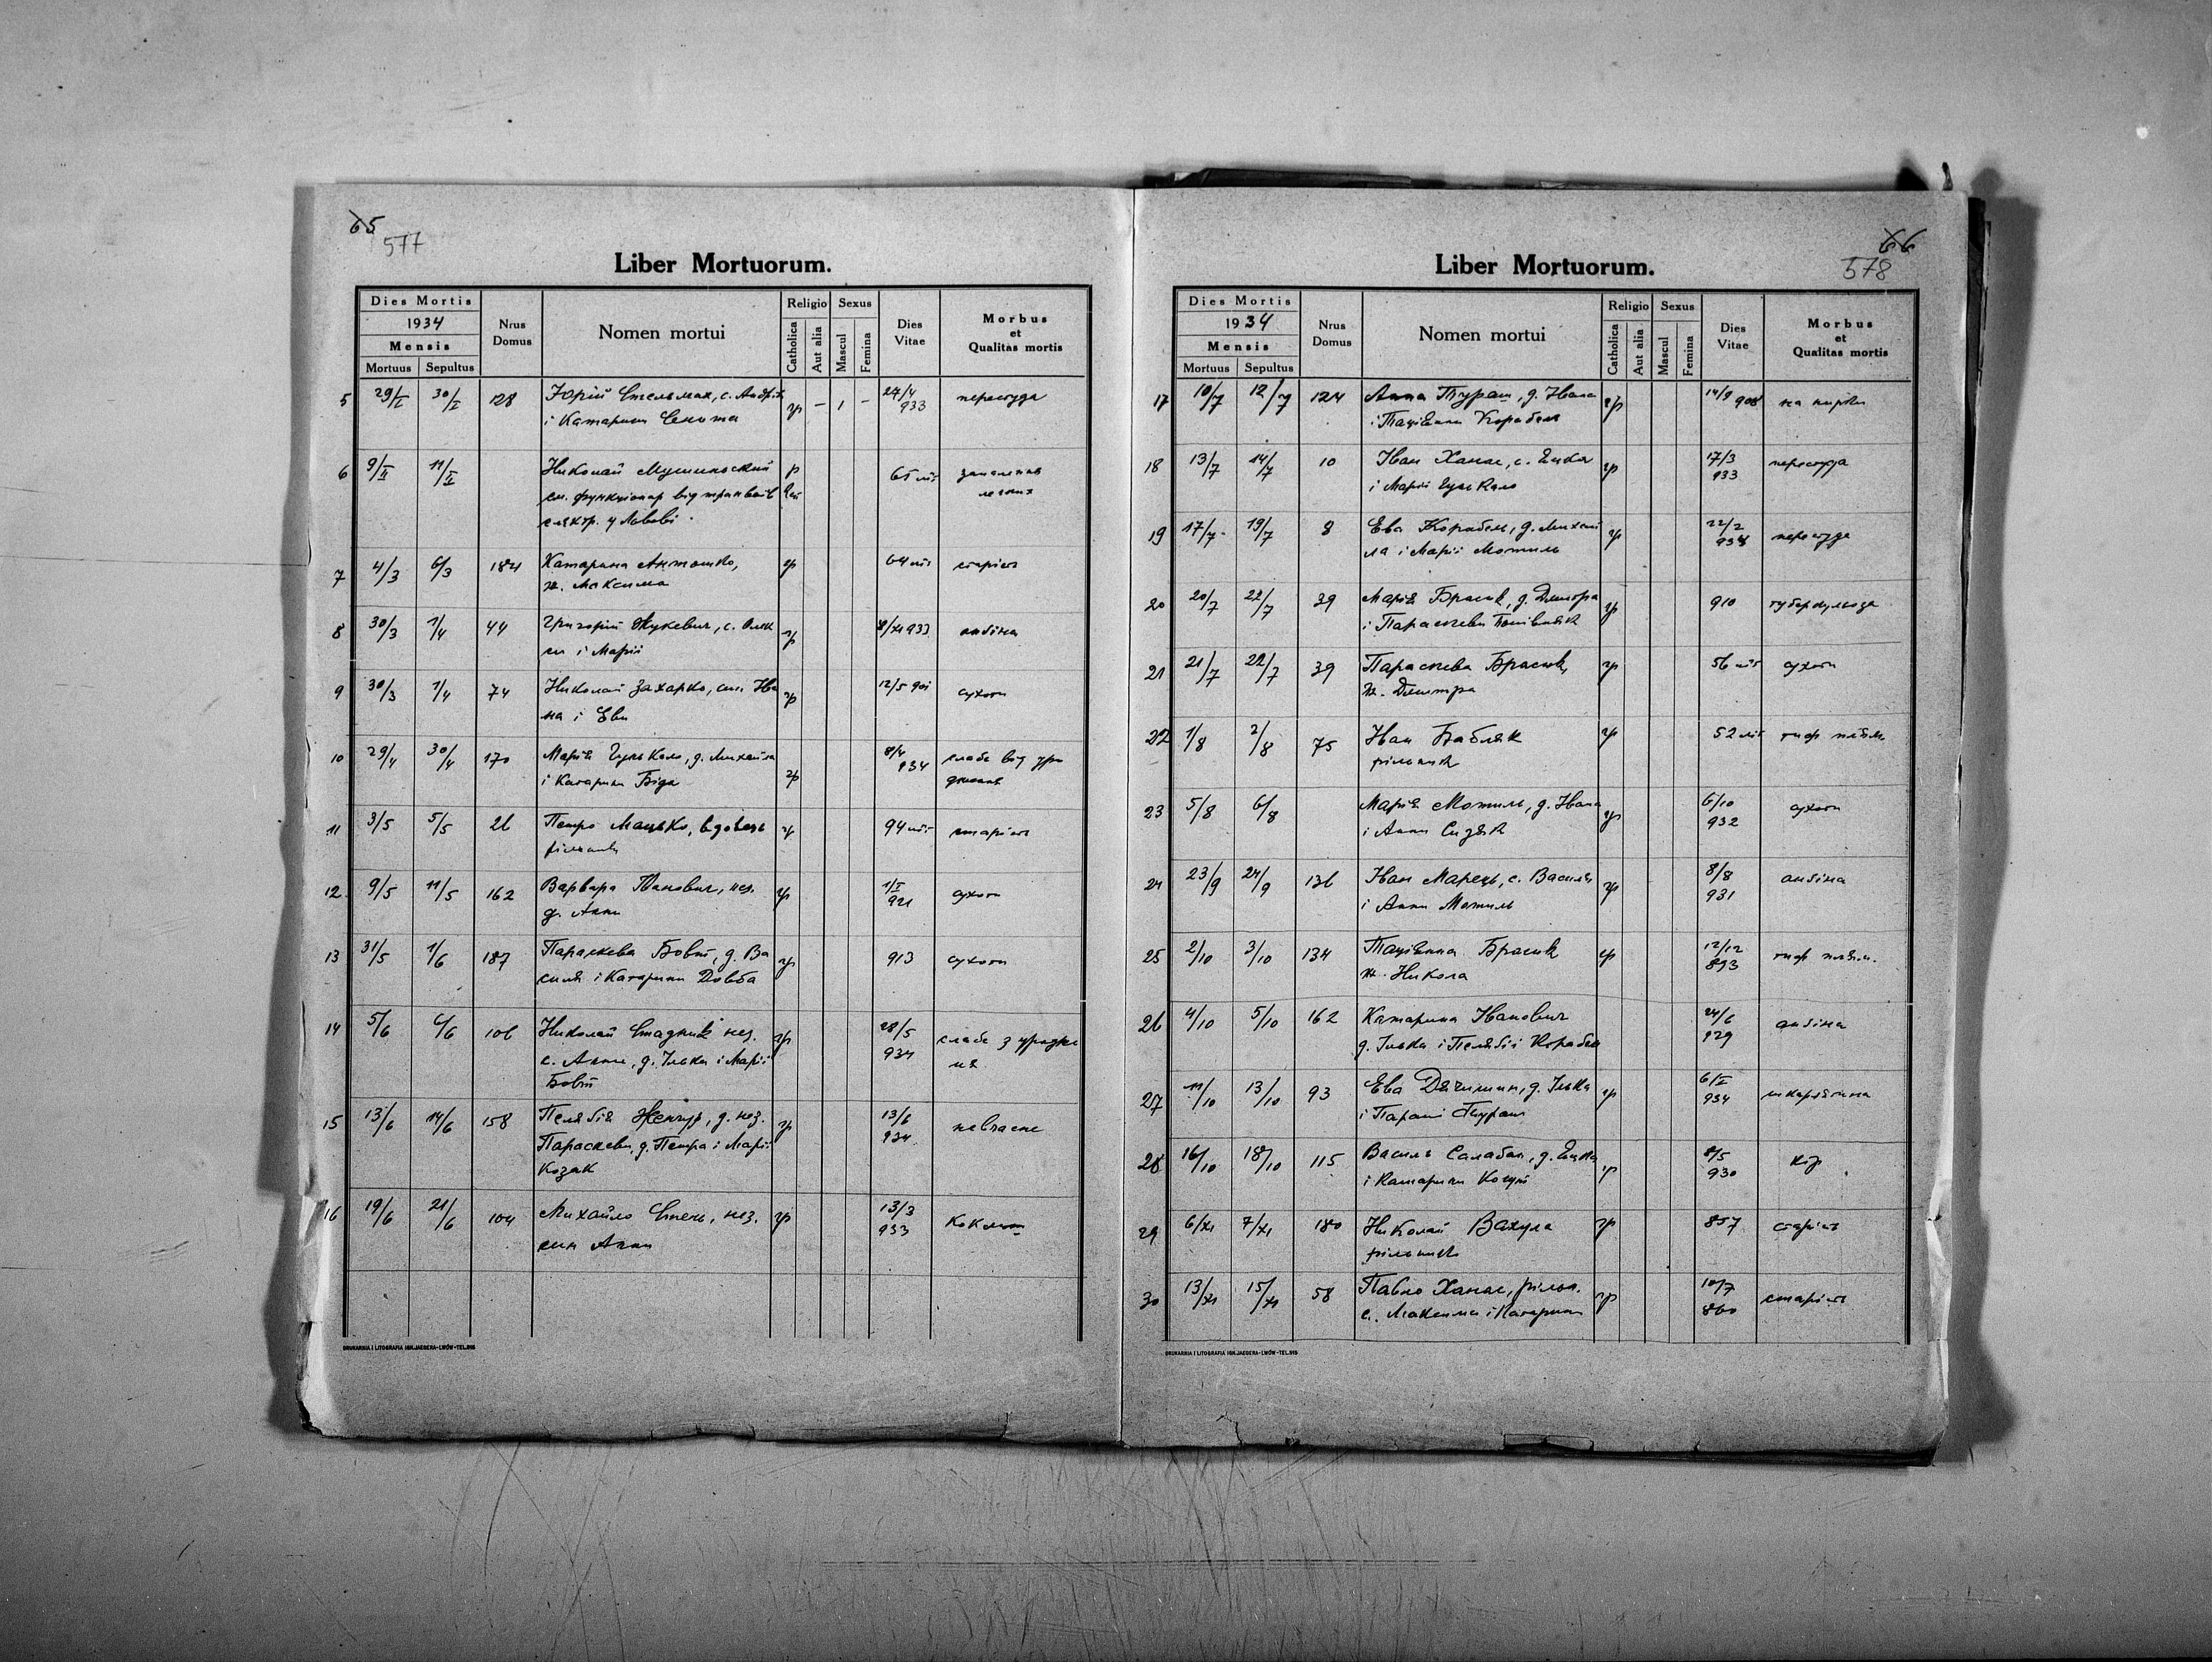 65
577
Liber Mortuorum.
Dies Mortis
1934
Mensis
Mortuus Sepultus
Nrus Domus
Nomen mortui
Religio
Catholica
Aut alia
Sexus
Mascul
Femina
Dies Vitae
Morbus
et
Qualitas mortis
5 29/I 30/I 128 Юрій Стельмах, с. Андрія гр – 1 – 24/4 пересуда
і Катарини 933
6 9/II 11/II Николай р 65 літ запалення
легких
у Львові
7 4/3 6/3 184 Катарина Антошко, гр 64 літ старість
ж. Максима
8 30/3 1/4 44 Григорій Жукевич, с. гр 933 анґіна
і Марії
9 30/3 1/4 74 Николай Захарко, син Ива гр 12/5 901 сухоти
на і Еви
10 29/4 30/4 170 Марія Гулькало, д. Михайла 8/4 слабе від уро
і Катарини Біда гр 934 дження
11 3/5 5/5 26 Петро Мацько, вдовець гр 94 літ старість
рільник
12 9/5 11/5 162 Варвара Іванович, нез. гр 1/I сухоти
д. Анни 921
13 31/5 1/6 187 Параскева Бовт, д. Ва гр 913 сухоти
силя і Катарини Довба
14 5/6 6/6 106 Николай Стадник нез. гр 28/5 слабе з уродже
с. Анни, д. Ілька і Марії 934 ня
Бовт
15 13/6 14/6 158 Пелягія Женчур, д. нез. гр 13/6 невчасне
Параскеви, д. Петра і Марії 934
Козак
16 19/6 21/6 104 Михайло Стець, нез. гр 13/3 Коклюш
син Анни 933
DRUKARNIA I LITOGRAFIA IGN.JAEGERA-LWÓW-TEL.918
66
578
Liber Mortuorum.
Dies Mortis
1934
Mensis
Mortuus Sepultus
Nrus Domus
Nomen mortui
Religio
Catholica
Aut alia
Sexus
Mascul
Femina
Dies Vitae
Morbus
et
Qualitas mortis
17 10/7 12/7 124 Анна Тураш, д. Ивана гр 14/9 908 на нирки
і Тацїянни Корабель
18 13/7 14/7 10 Іван Ханас, с. Яцка гр 17/3 пересуда
і Марії Гулькало 933
19 17/7 19/7 8 Ева Корабель, д. Михай гр 22/2 пересуда
ла і Марії Мотиль 934
20 20/7 22/7 39 Марія Брасик, д. Дмитра гр 910 туберкульоза
і Параскеви
21 21/7 22/7 39 Параскева Брасик, гр 56 літ сухоти
ж. Дмитра
22 1/8 2/8 75 Иван Бабляк гр 52 літ тиф плям.
рільник
23 5/8 6/8 Марія Мотиль, д. Ивана гр 6/10 сухоти
і Анни Сидяк 932
24 23/9 24/9 136 Іван Марець, с. Василя гр 8/8 анґіна
і Анни Мотиль 931
25 2/10 3/10 134 Тацїянна Брасик гр 12/12 тиф плям.
ж. Никола 893
26 4/10 5/10 162 Катарина Іванович 24/6 анґіна
д. Ілька і Пелягії Корабель 929
27 11/10 13/10 93 Ева Дячишин, д. Ілька гр 6/I шкарлятина
і Параскі Тураш 934
28 16/10 18/10 115 Василь Салабай, д. Яцка гр 8/5 кір
і Катарини Когут 930
29 6/XI 7/XI 180 Николай Вахула гр 857 старість
рільник
30 13/XI 15/XI 58 Павло Ханас, рільн. гр 10/7 старість
с. Максима і Катарини 860
DRUKARNIA I LITOGRAFIA IGN.JAEGERA-LWÓW-TEL.918